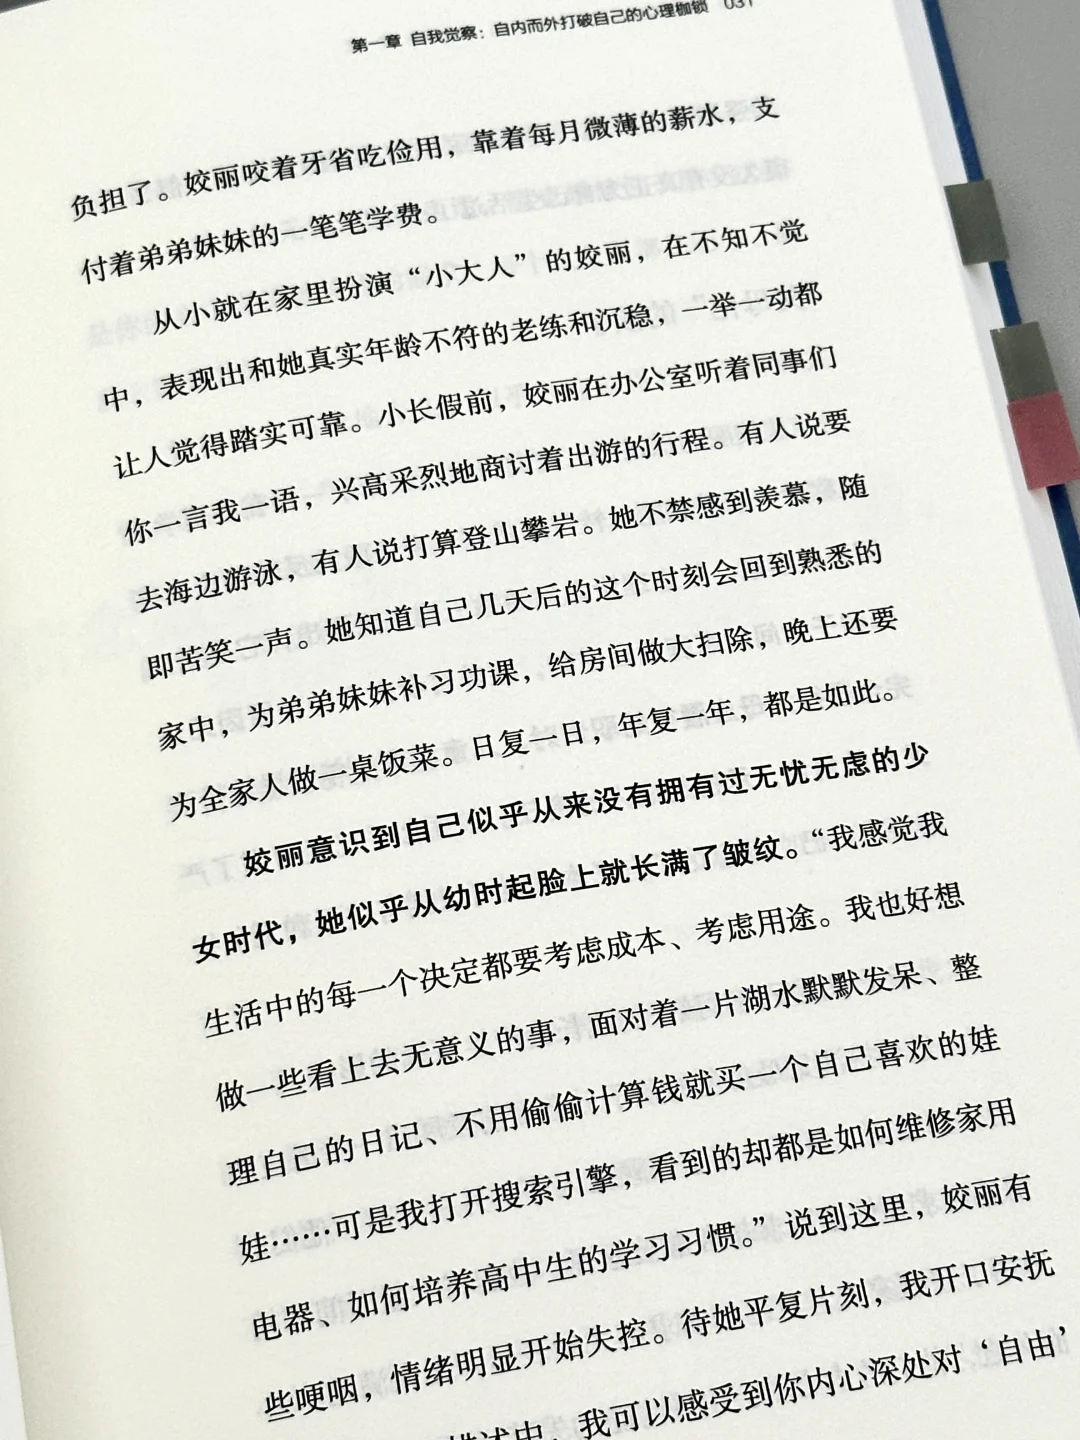 第一章 自我觉察：自内而外打破自己的心理枷锁 031
负担了。姣丽咬着牙省吃俭用，靠着每月微薄的薪水，支
付着弟弟妹妹的一笔笔学费。
从小就在家里扮演“小大人”的姣丽，在不知不觉
中，表现出和她真实年龄不符的老练和沉稳，一举一动都
让人觉得踏实可靠。小长假前，姣丽在办公室听着同事们
你一言我一语，兴高采烈地商讨着出游的行程。有人说要
去海边游泳，有人说打算登山攀岩。她不禁感到羡慕，随
即苦笑一声。她知道自己几天后的这个时刻会回到熟悉的
家中，为弟弟妹妹补习功课，给房间做大扫除，晚上还要
为全家人做一桌饭菜。日复一日，年复一年，都是如此。
姣丽意识到自己似乎从来没有拥有过无忧无虑的少
女时代，她似乎从幼时起脸上就长满了皱纹。“我感觉我
生活中的每一个决定都要考虑成本、考虑用途。我也好想
做一些看上去无意义的事，面对着一片湖水默默发呆、整
理自己的日记、不用偷偷计算钱就买一个自己喜欢的娃
娃……可是我打开搜索引擎，看到的却都是如何维修家用
电器、如何培养高中生的学习习惯。”说到这里，姣丽有
些哽咽，情绪明显开始失控。待她平复片刻，我开口安抚
描述中，我可以感受到你内心深处对‘自由’